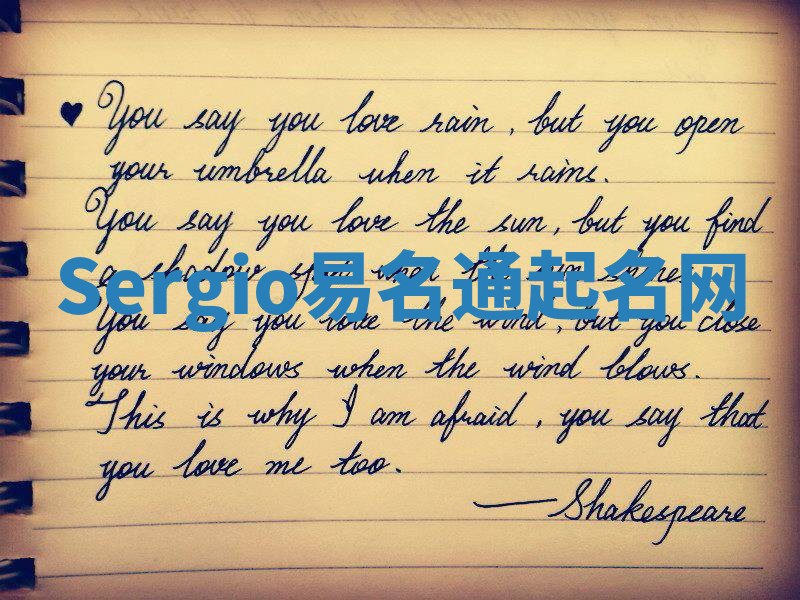 ♥ You say you love rain, but you open
your umbrella when it rains.
You say you love the sun, but you find
a shadow spot when the sun shines.
Sergio易名通起名网
You say you love the wind, but you close
your windows when the wind blows.
This is why I am afraid, you say that
you love me too.
—Shakespeare